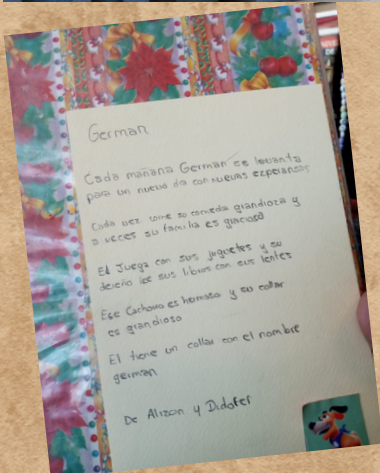 German
Cada mañana German se levanta
para un nuevo dia con nuevas ezperansas
Cada vez come su comeda grandioza y
a veces su familia es graciosa
El Juega con sus juguetes y su
dueño lee sus libros con sus lentes
Ese Cachorro es hermoso y su collar
es grandioso
El tiene un collar con el nombre
german
De Alizon y Didofer